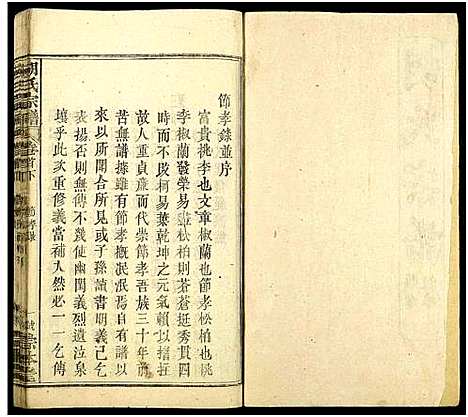 節孝錄並序
富貴桃李也文章椒蘭也節孝松柏也桃
李椒蘭發榮易盡松柏則蒼蒼挺秀貫四
時而不改柯易葉乾坤之元氣賴以搘拄
故人重貞廉而代崇節孝吾族三十年前
苦無譜據雖有節孝概泯泯焉自有譜以
來以所聞合所見或子孫讀書明義己乞
表揚否則無傳之幾使幽閨義烈遺泣泉
壤乎此次重修義當補入然必一一乞傳
胡氏宗譜
卷首下
節孝錄